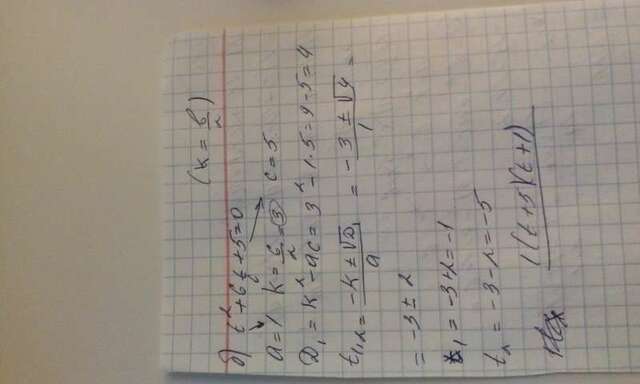 (k = b/2)
б) t² + 6t + 5 = 0
a = 1 k = 6/2 = 3 c = 5
D₁ = k² - ac = 3² - 1·5 = 9 - 5 = 4
t₁,₂ = (-k ± √D₁)/a = (-3 ± √4)/1 =
= -3 ± 2
t₁ = -3 + 2 = -1
t₂ = -3 - 2 = -5
1(t + 5)(t + 1)